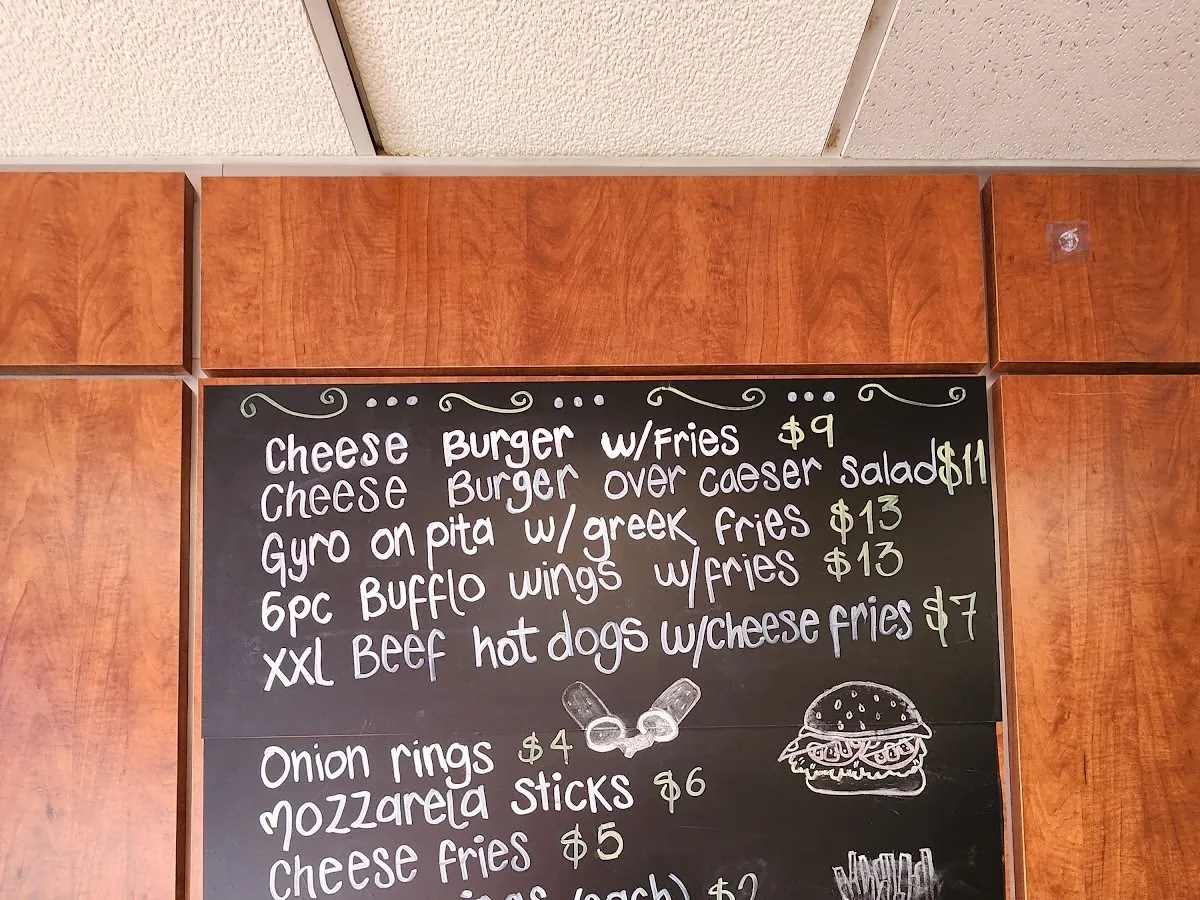 Cheese Burger w/Fries $9
Cheese Burger over caeser salad $11
Gyro on pita w/greek fries $13
6pc Bufflo wings w/fries $13
XXL Beef hot dogs w/cheese fries $7
Onion rings $4
Mozzarela Sticks $6
Cheese fries $5
(each) $2